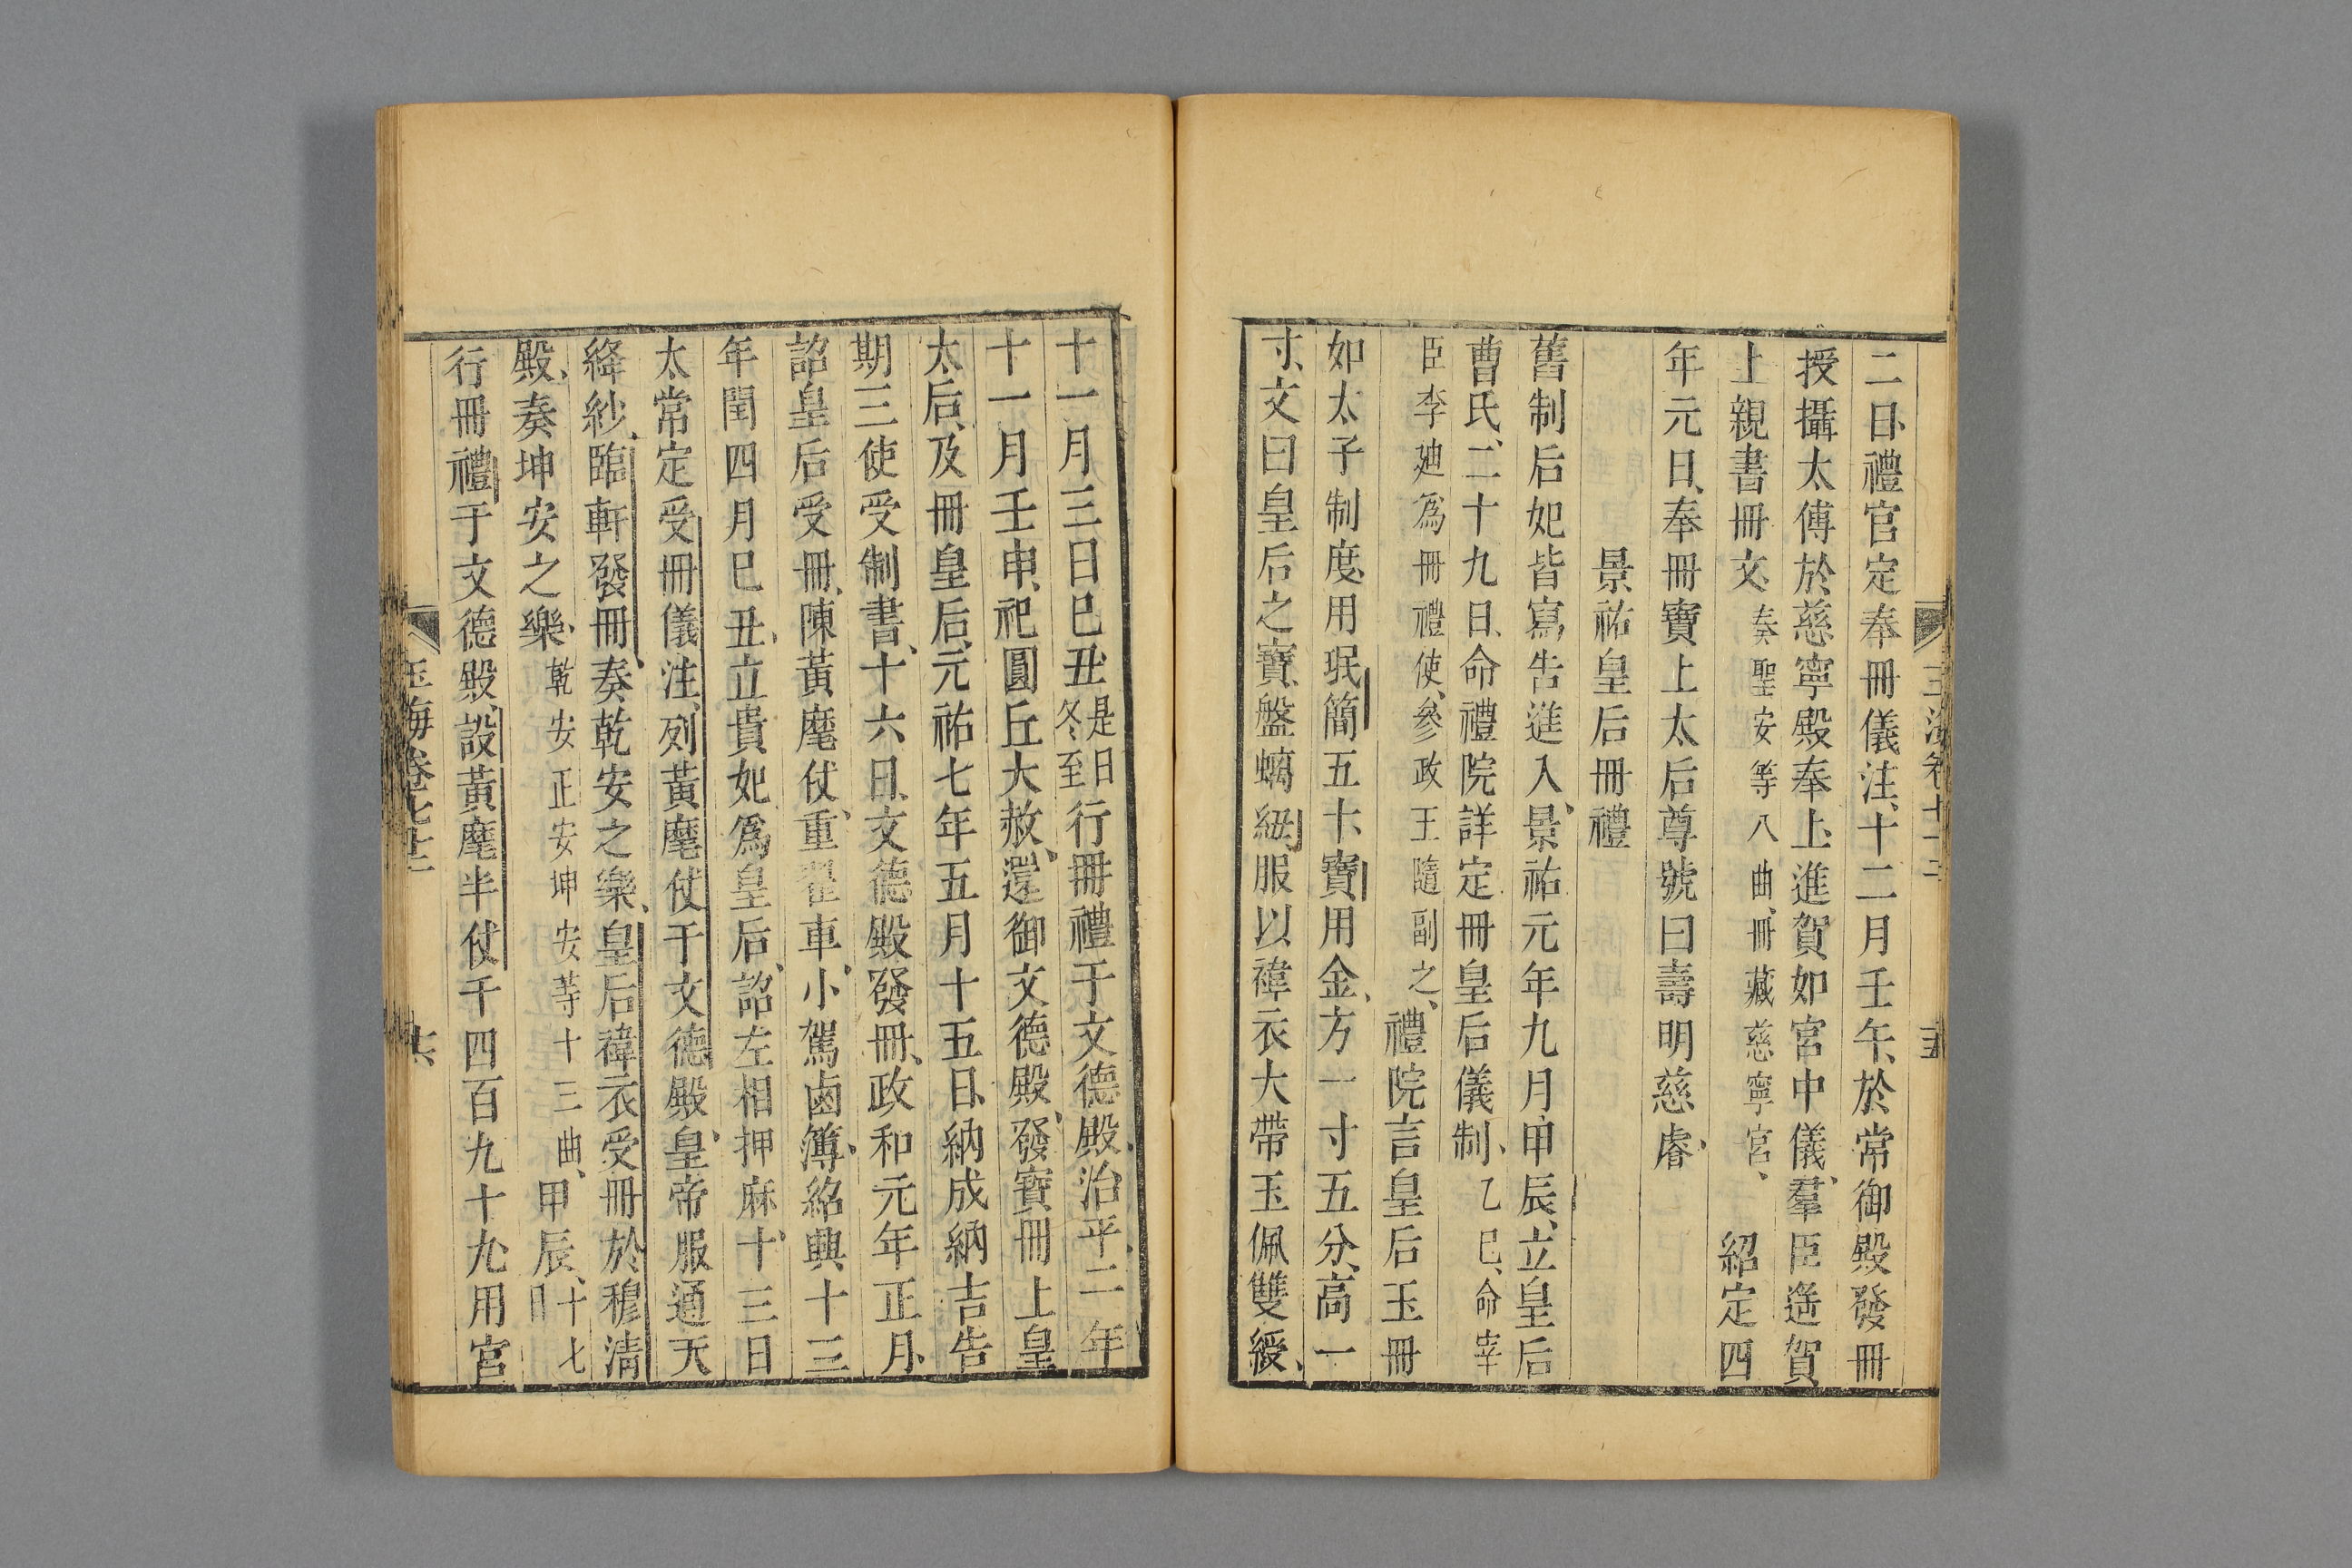 二日、禮官定奉冊儀注、十二月壬午、於常御殿發冊
授攝太傅於慈寧殿奉上、進賀如宮中儀、羣臣造賀
上親書冊文、奏聖安等八曲、冊藏慈寧宮、紹定四
年元日、奉冊寶上太后尊號曰壽明慈睿、
景祐皇后冊禮
舊制后妃皆寫告進入、景祐元年九月甲辰、立皇后
曹氏、二十九日、命禮院詳定冊皇后儀制、乙巳、命宰
臣李迪爲冊禮使、參政王隨副之、禮院言皇后玉冊
如太子制度、用珉簡五十、寶用金、方一寸五分、高一
寸、文曰皇后之寶、盤螭紐、服以褘衣大帶玉佩雙綬、
十一月三日己丑、是日冬至行冊禮于文德殿、治平二年
十一月壬申、祀圓丘大赦、還御文德殿、發寶冊上皇
太后、及冊皇后、元祐七年五月十五日、納成納吉告
期三使受制書、十六日、文德殿發冊、政和元年正月、
詔皇后受冊、陳黃麾仗、重翟車、小駕鹵簿、紹興十三
年閏四月己丑、立貴妃爲皇后、詔左相押麻、十三日
太常定受冊儀注、列黃麾仗于文德殿、皇帝服通天
絳紗、臨軒發冊、奏乾安之樂、皇后褘衣受冊於穆清
殿、奏坤安之樂、乾安正安坤安等十三曲、甲辰、十七日
行冊禮于文德殿、設黃麾半仗千四百九十九、用宮
玉海卷七十二
十六